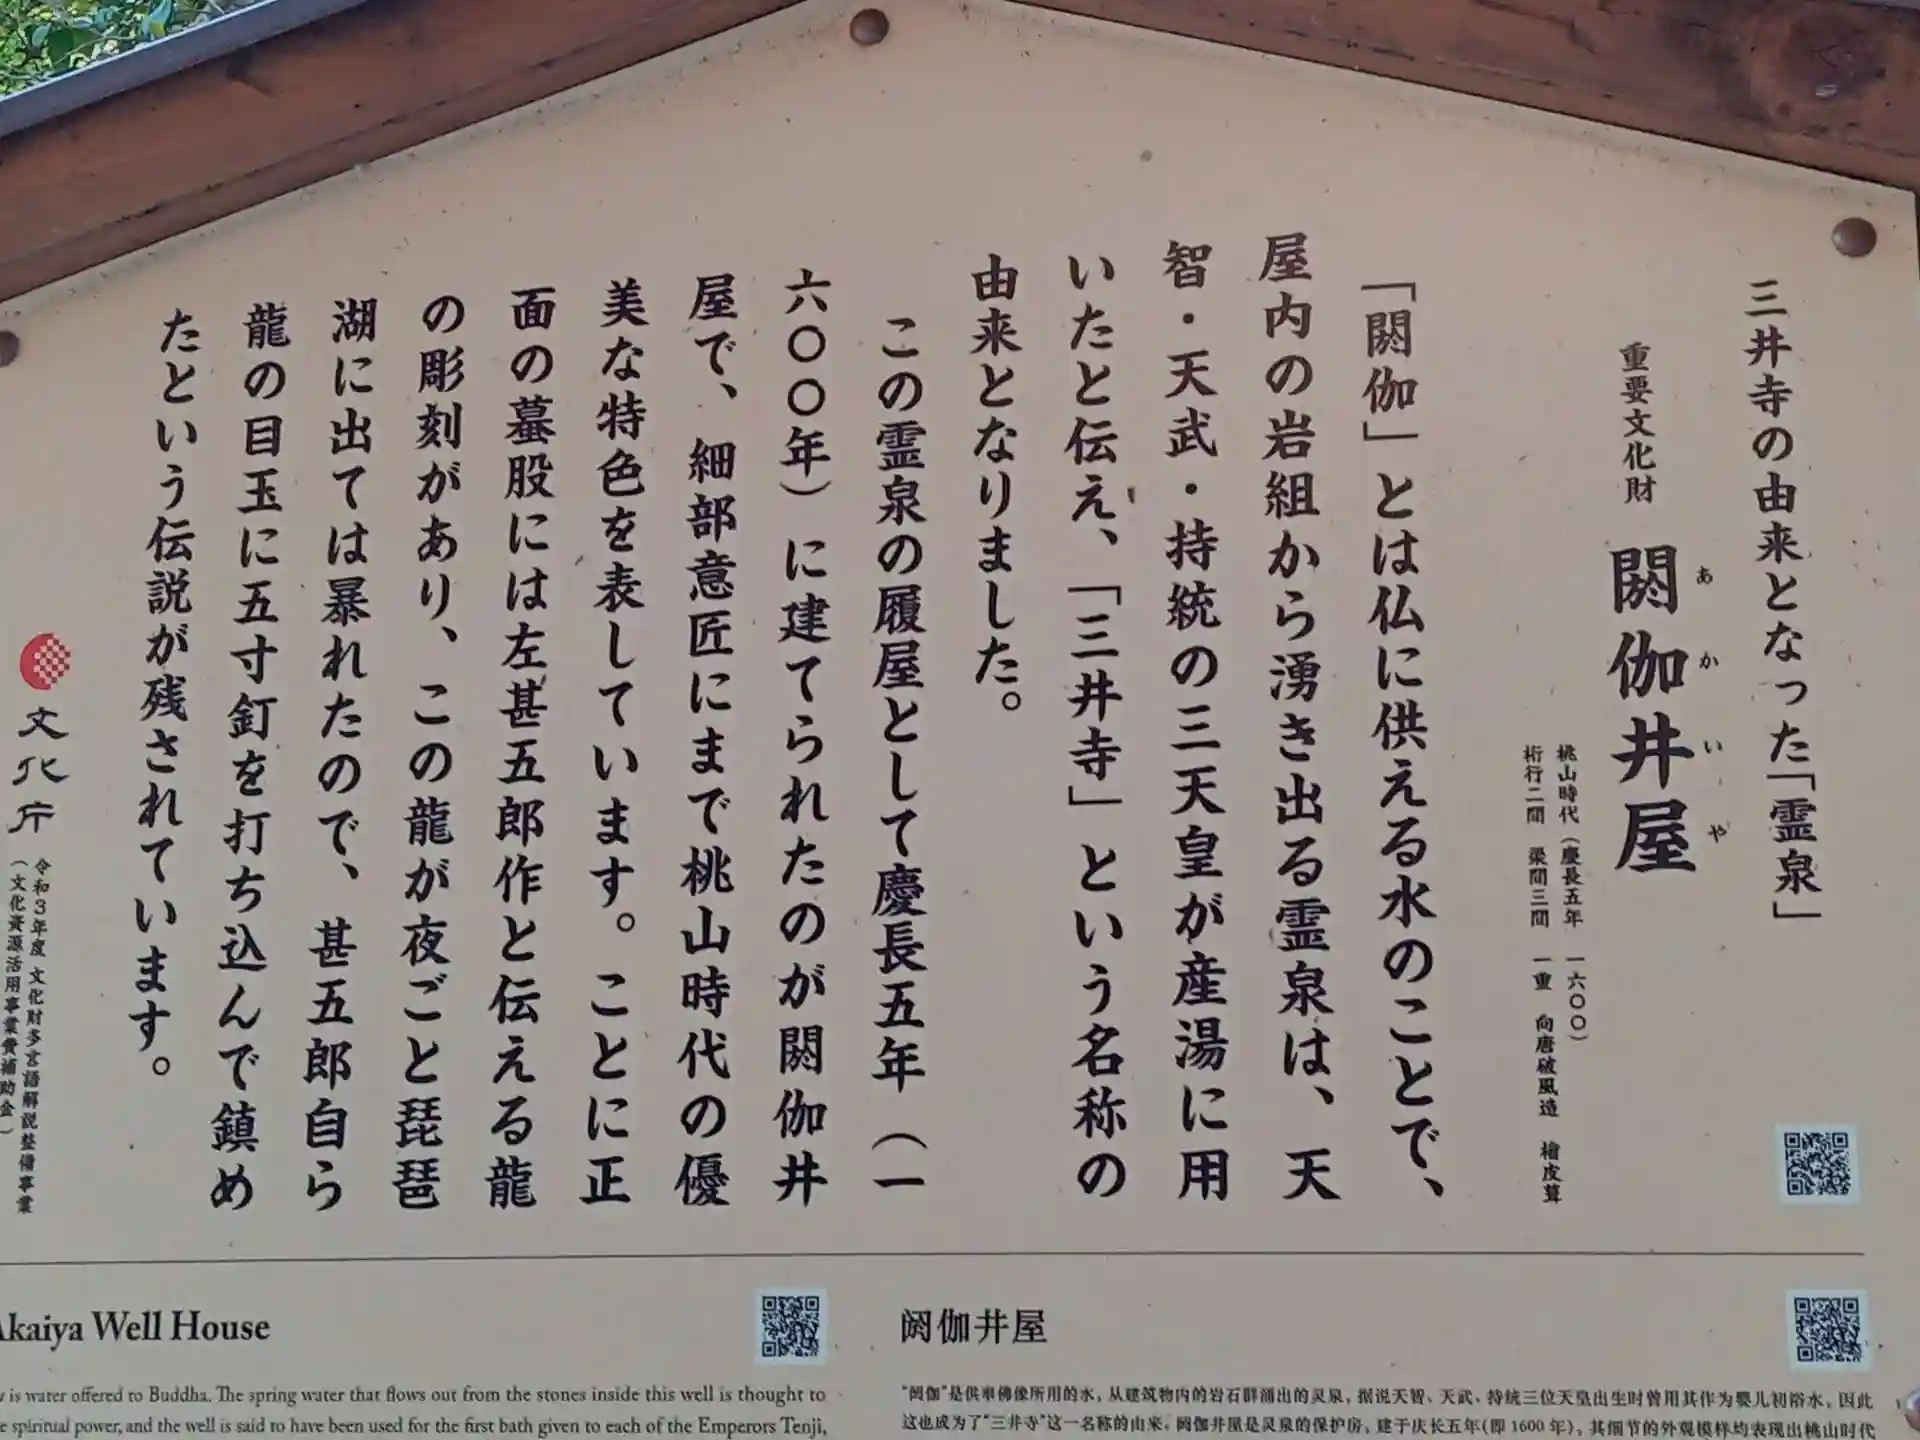 三井寺の由来となった「霊泉」
重要文化財 閼伽井屋
あかいや
桃山時代(慶長五年 一六〇〇)
桁行二間 梁間三間 一重 向唐破風造 檜皮葺
「閼伽」とは仏に供える水のことで、
屋内の岩組から湧き出る霊泉は、天
智・天武・持統の三天皇が産湯に用
いたと伝え、「三井寺」という名称の
由来となりました。
この霊泉の履屋として慶長五年(一
六〇〇年)に建てられたのが閼伽井
屋で、細部意匠にまで桃山時代の優
美な特色を表しています。ことに正
面の蟇股には左甚五郎作と伝える龍
の彫刻があり、この龍が夜ごと琵琶
湖に出ては暴れたので、甚五郎自ら
龍の目玉に五寸釘を打ち込んで鎮め
たという伝説が残されています。
文化庁
令和3年度 文化財多言語解説整備事業
(文化資源活用事業費補助金)
Akaiya Well House
is water offered to Buddha. The spring water that flows out from the stones inside this well is thought to
spiritual power, and the well is said to have been used for the first bath given to each of the Emperors Tenji,
阏伽井屋
“阏伽”是供奉佛像所用的水，从建筑物内的岩石群涌出的灵泉，据说天智、天武、持统三位天皇出生时曾用其作为婴儿初浴水，因此
这也成为了“三井寺”这一名称的由来。阏伽井屋是灵泉的保护房，建于庆长五年(即 1600 年)，其细节的外观模样均表现出桃山时代